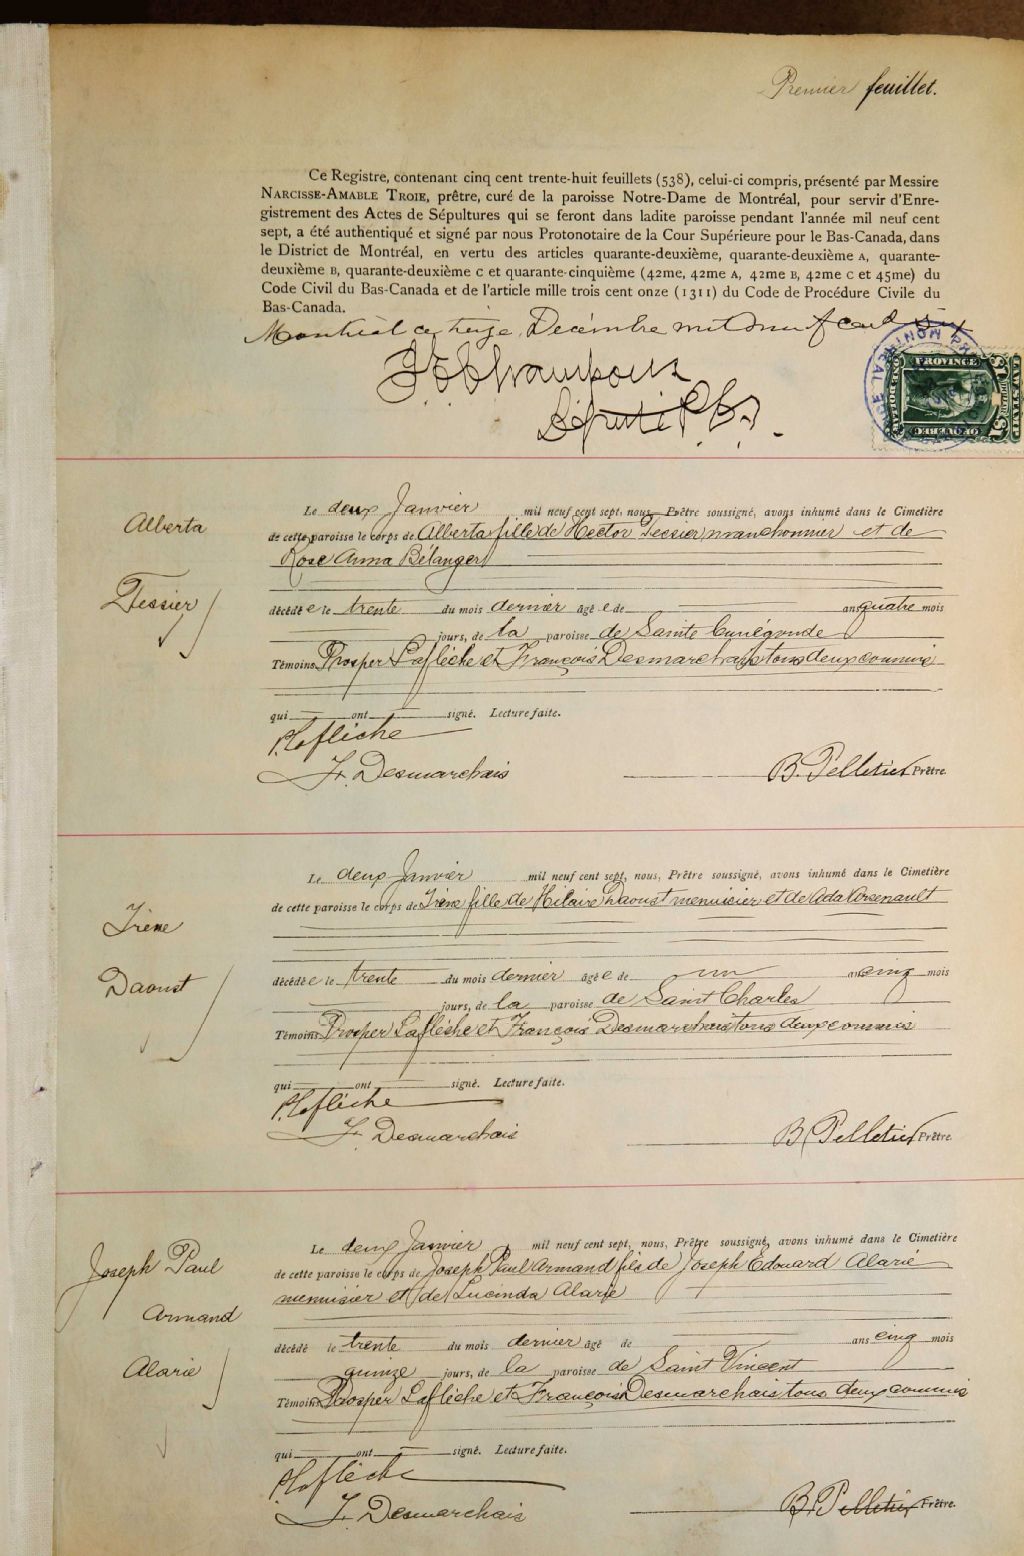 Premier feuillet.
Ce Registre, contenant cinq cent trente-huit feuillets (538), celui-ci compris, présenté par Messire
NARCISSE-AMABLE TROIE, prêtre, curé de la paroisse Notre-Dame de Montréal, pour servir d'Enre-
gistrement des Actes de Sépultures qui se feront dans ladite paroisse pendant l'année mil neuf cent
sept, a été authentiqué et signé par nous Protonotaire de la Cour Supérieure pour le Bas-Canada, dans
le District de Montréal, en vertu des articles quarante-deuxième, quarante-deuxième A, quarante-
deuxième B, quarante-deuxième C et quarante-cinquième (42me, 42me A, 42me B, 42me C et 45me) du
Code Civil du Bas-Canada et de l'article mille trois cent onze (1311) du Code de Procédure Civile du
Bas-Canada.
Montréal ce treize Décembre mil neuf cent six
Député P.C.S.
PROVINCE
QUEBEC
LAW STAMP
$1
MONTREAL
Alberta
Tessier
Le deux Janvier mil neuf cent sept, nous, Prêtre soussigné, avons inhumé dans le Cimetière
de cette paroisse le corps de Alberta fille de Hector Tessier manchonnier et de
Rose Anna Bélanger
décédée le trente du mois dernier âgée de ans quatre mois
jours, de la paroisse de Sainte Cunégonde
Témoins Prosper Laflèche et François Desmarchais tous deux commis
qui ont signé. Lecture faite.
P. Laflèche
F. Desmarchais
B. Pelletier Prêtre.
Irène
Daoust
Le deux Janvier mil neuf cent sept, nous, Prêtre soussigné, avons inhumé dans le Cimetière
de cette paroisse le corps de Irène fille de Hilaire Daoust menuisier et de Ada Arsenault
décédée le trente du mois dernier âgée de un an cinq mois
jours, de la paroisse de Saint Charles
Témoins Prosper Laflèche et François Desmarchais tous deux commis
qui ont signé. Lecture faite.
P. Laflèche
F. Desmarchais
B. Pelletier Prêtre.
Joseph Paul
Armand
Alarie
Le deux Janvier mil neuf cent sept, nous, Prêtre soussigné, avons inhumé dans le Cimetière
de cette paroisse le corps de Joseph Paul Armand fils de Joseph Edouard Alarie
menuisier et de Lucinda Alarie
décédé le trente du mois dernier âgé de ans cinq mois
quinze jours, de la paroisse de Saint Vincent
Témoins Prosper Laflèche et François Desmarchais tous deux commis
qui ont signé. Lecture faite.
P. Laflèche
F. Desmarchais
B. Pelletier Prêtre.